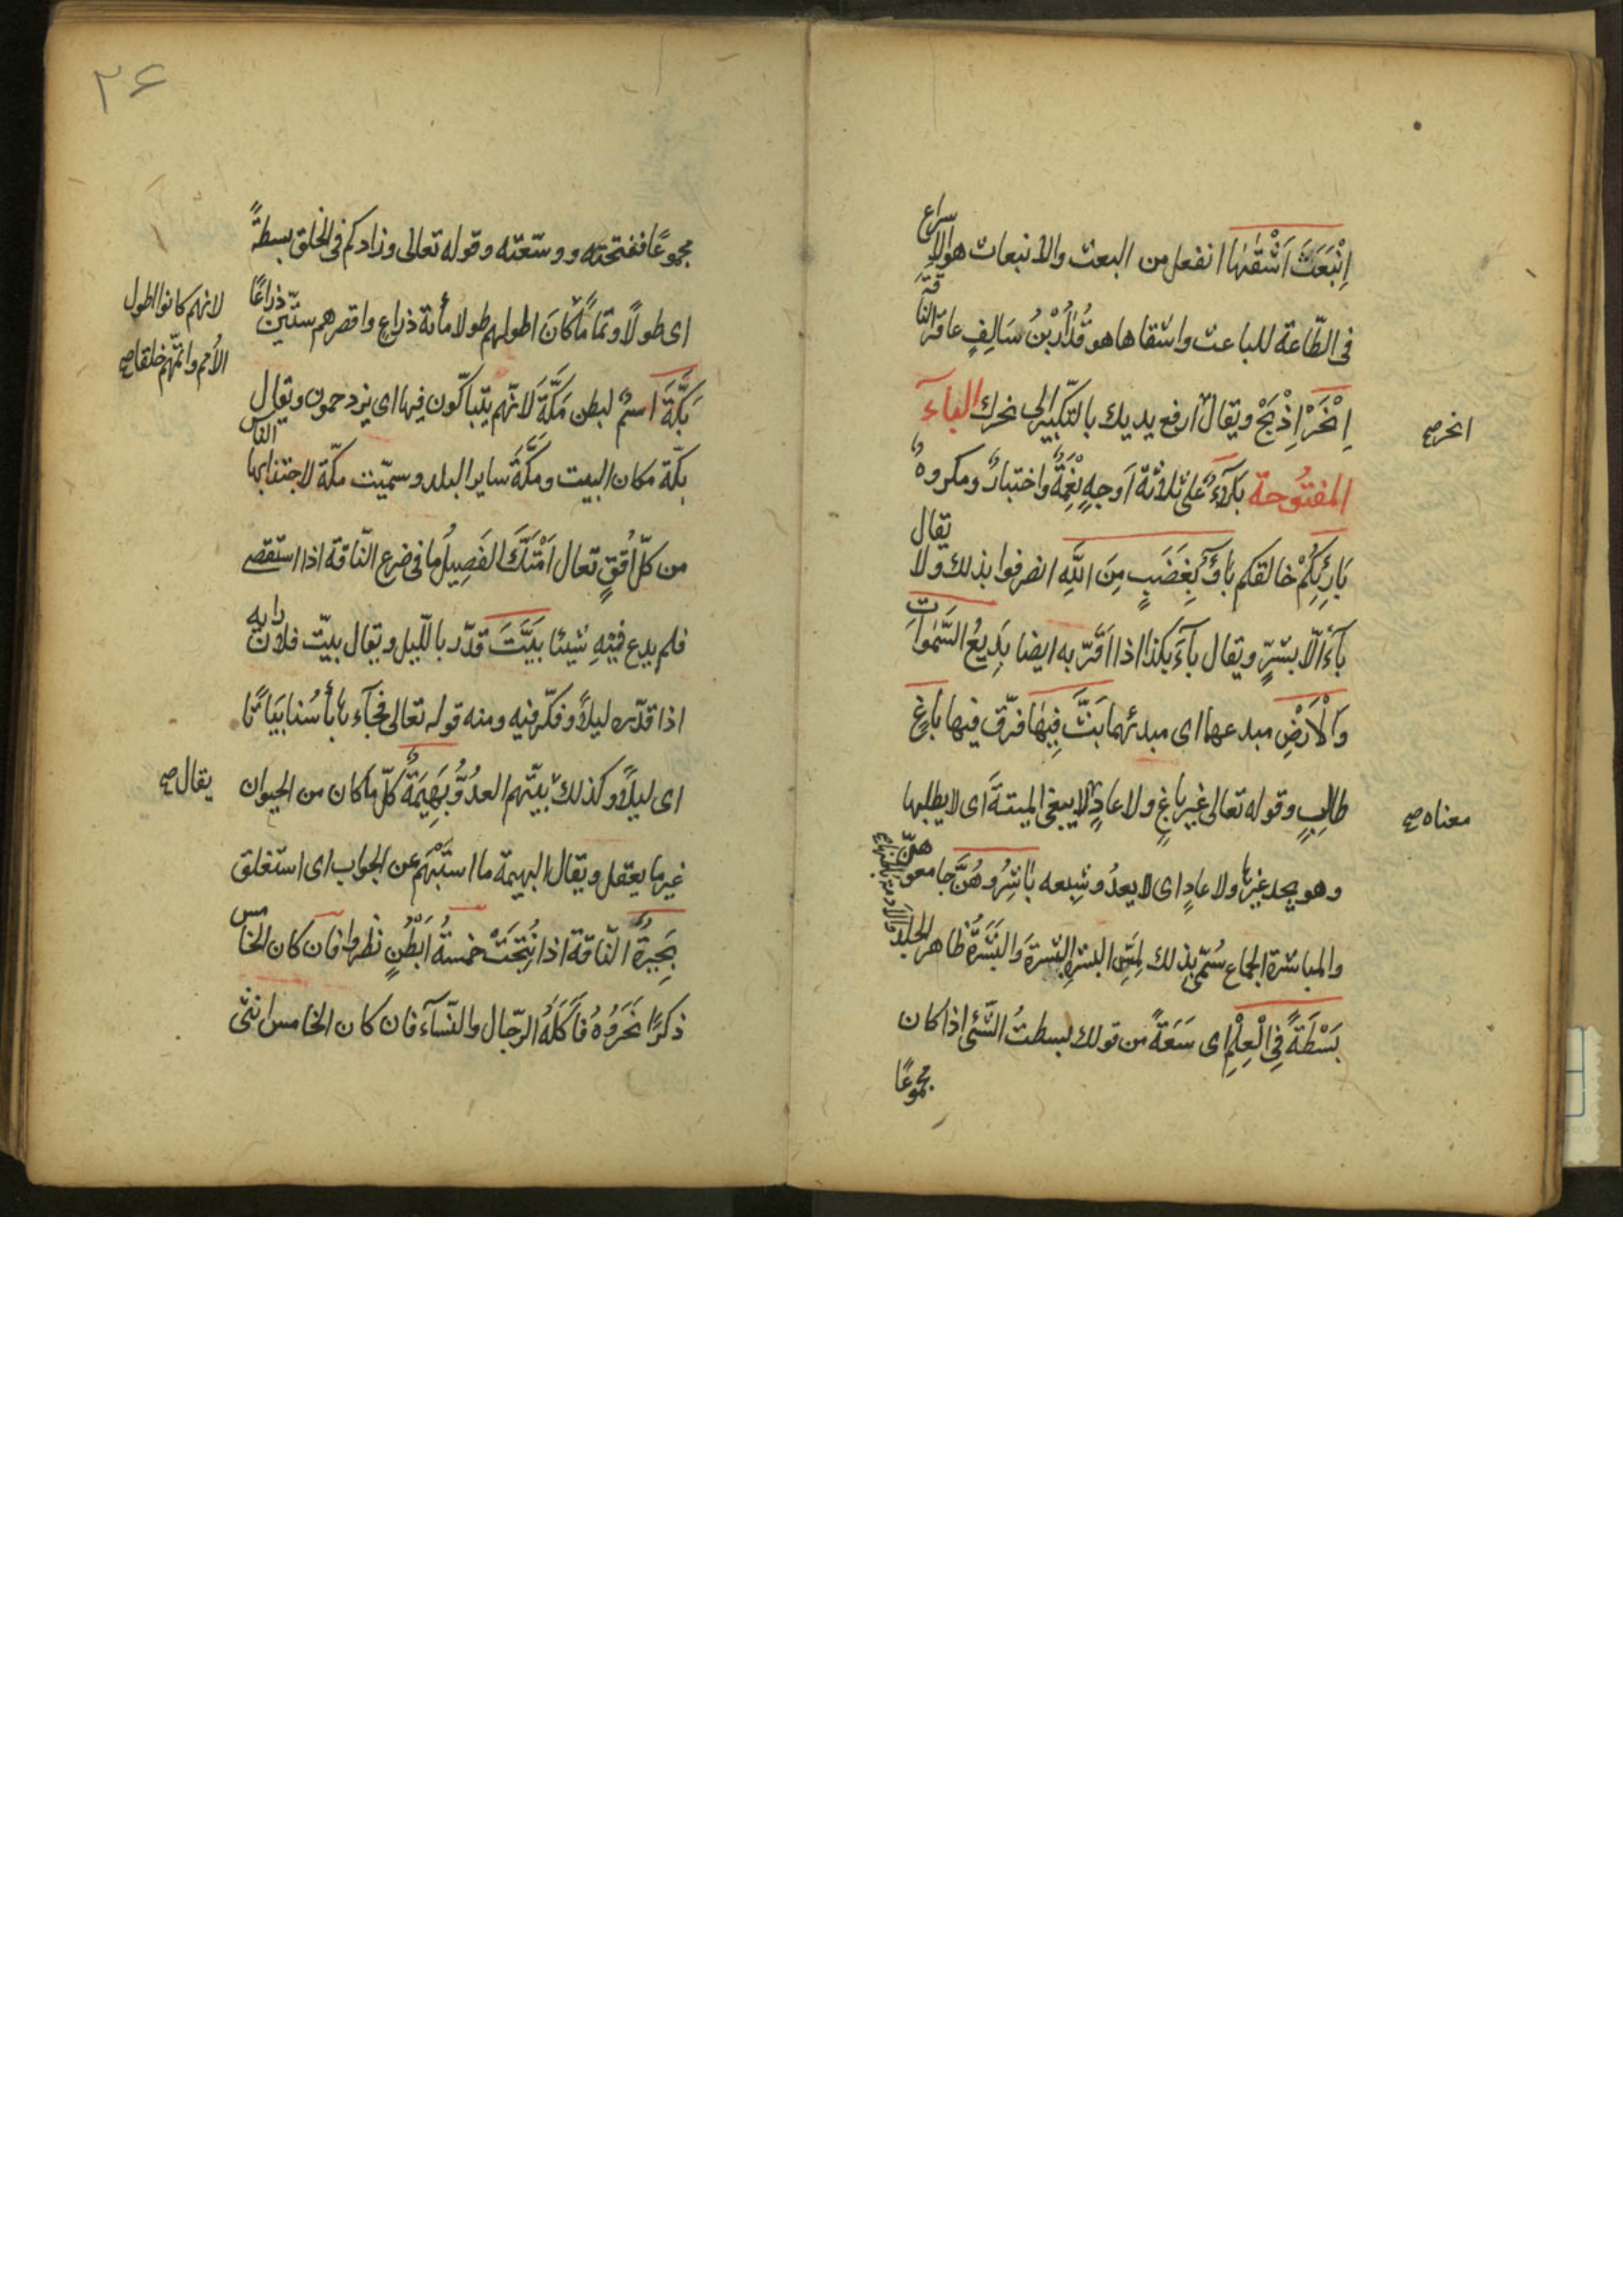 اِنْبَعَثَ اَشْقٰهٰا انفعل من البعث والانبعاث هو الاسراع
فى الطّاعة للباعث واشقاها هو قُدَارُ بْنُ سَالِفٍ عاقر الناقة
اِنْحَرْ اِذْبَحْ ويقال ارفع يديك بالتكبير الى نحرك الباء
انحر صح
المفتُوحة بَلَآءٌ على ثلاثة اَوجهٍ نِعْمَةٌ واختبارٌ ومكروهٌ
بَارِئِكُمْ خالقكم بَاؤُ بِغَضَبٍ مِنَ اللّٰهِ انصرفوا بذلك ولا يقال
بَآءَ الّا بشرٍّ ويقال بآءَ بكذا اذا اقرّ به ايضا بَدِيعُ السَّمٰوَاتِ
وَالْاَرْضِ مبدعها اى مبدئهما بَثَّ فِيهٰا فرّق فيها بَاغٍ
طالِبٍ وقوله تعالى غير باغٍ ولا عادٍ لا يبغى الميتةَ اى لا يطلبها
معناه صح
وهو يجد غيرها ولا عادٍ اى لا يعدُو شبعه بَاشِرُوهُنَّ جامعوهنّ
والمباشرة الجماع سُمّى بذلك لِمَسِّ البشرةِ البشرةَ وَالبَشَرَةُ ظاهر الجلد
بَسْطَةً فِى الْعِلْمِ اى سَعَةً من قولك بسطتُ الشّئ اذا كان
مجموعًا
۲۶
مجموعًا ففتحته ووسّعته وقوله تعالى وزادكم فى الخلق بسطةً
اى طولًا وتمامًا كانَ اطولهم طولا مأئة ذراع واقصرهم ستّين ذراعًا
لانهم كانوا اطول
الأمم واتمّهم خلقا صح
بَكَّةَ اسمٌ لبطن مَكَّةَ لانهّم يتباكّون فيها اى يزدحمون ويقال
بكّة مكان البيت ومَكَّةُ ساير البلد وسمّيت مكّة لاجتذابها الناس
من كلّ اُفقٍ تقال اَمْتَكَّ الفَصِيلُ ما فى ضرع النّاقة اذا استقصى
فلم يدع فيْهِ شيئا بَيَّتَ قدّر بالّليل ويقال بيّت فلان رايه
اذا قدّره ليلاً وفكّر فيه ومنه قوله تعالى فجآءها بأسُنا بَيَاتًا
اى ليلاً وكذلك بيّتهم العدُوُّ بَهِيمَةٌ كلّ ما كان من الحيوان
يقال صح
غير ما يعقل ويقال البهيمة ما استَبْهَمَ عن الجواب اى استغلق
بَحِيرَةٌ النّاقة اذا نُتِجَتْ خمسةُ اَبْطُنٍ نظروا فان كان الخامس
ذكرًا نَحَرُوهُ فاَكَلَهُ الرّجال والنّسآء فان كان الخامس انثى